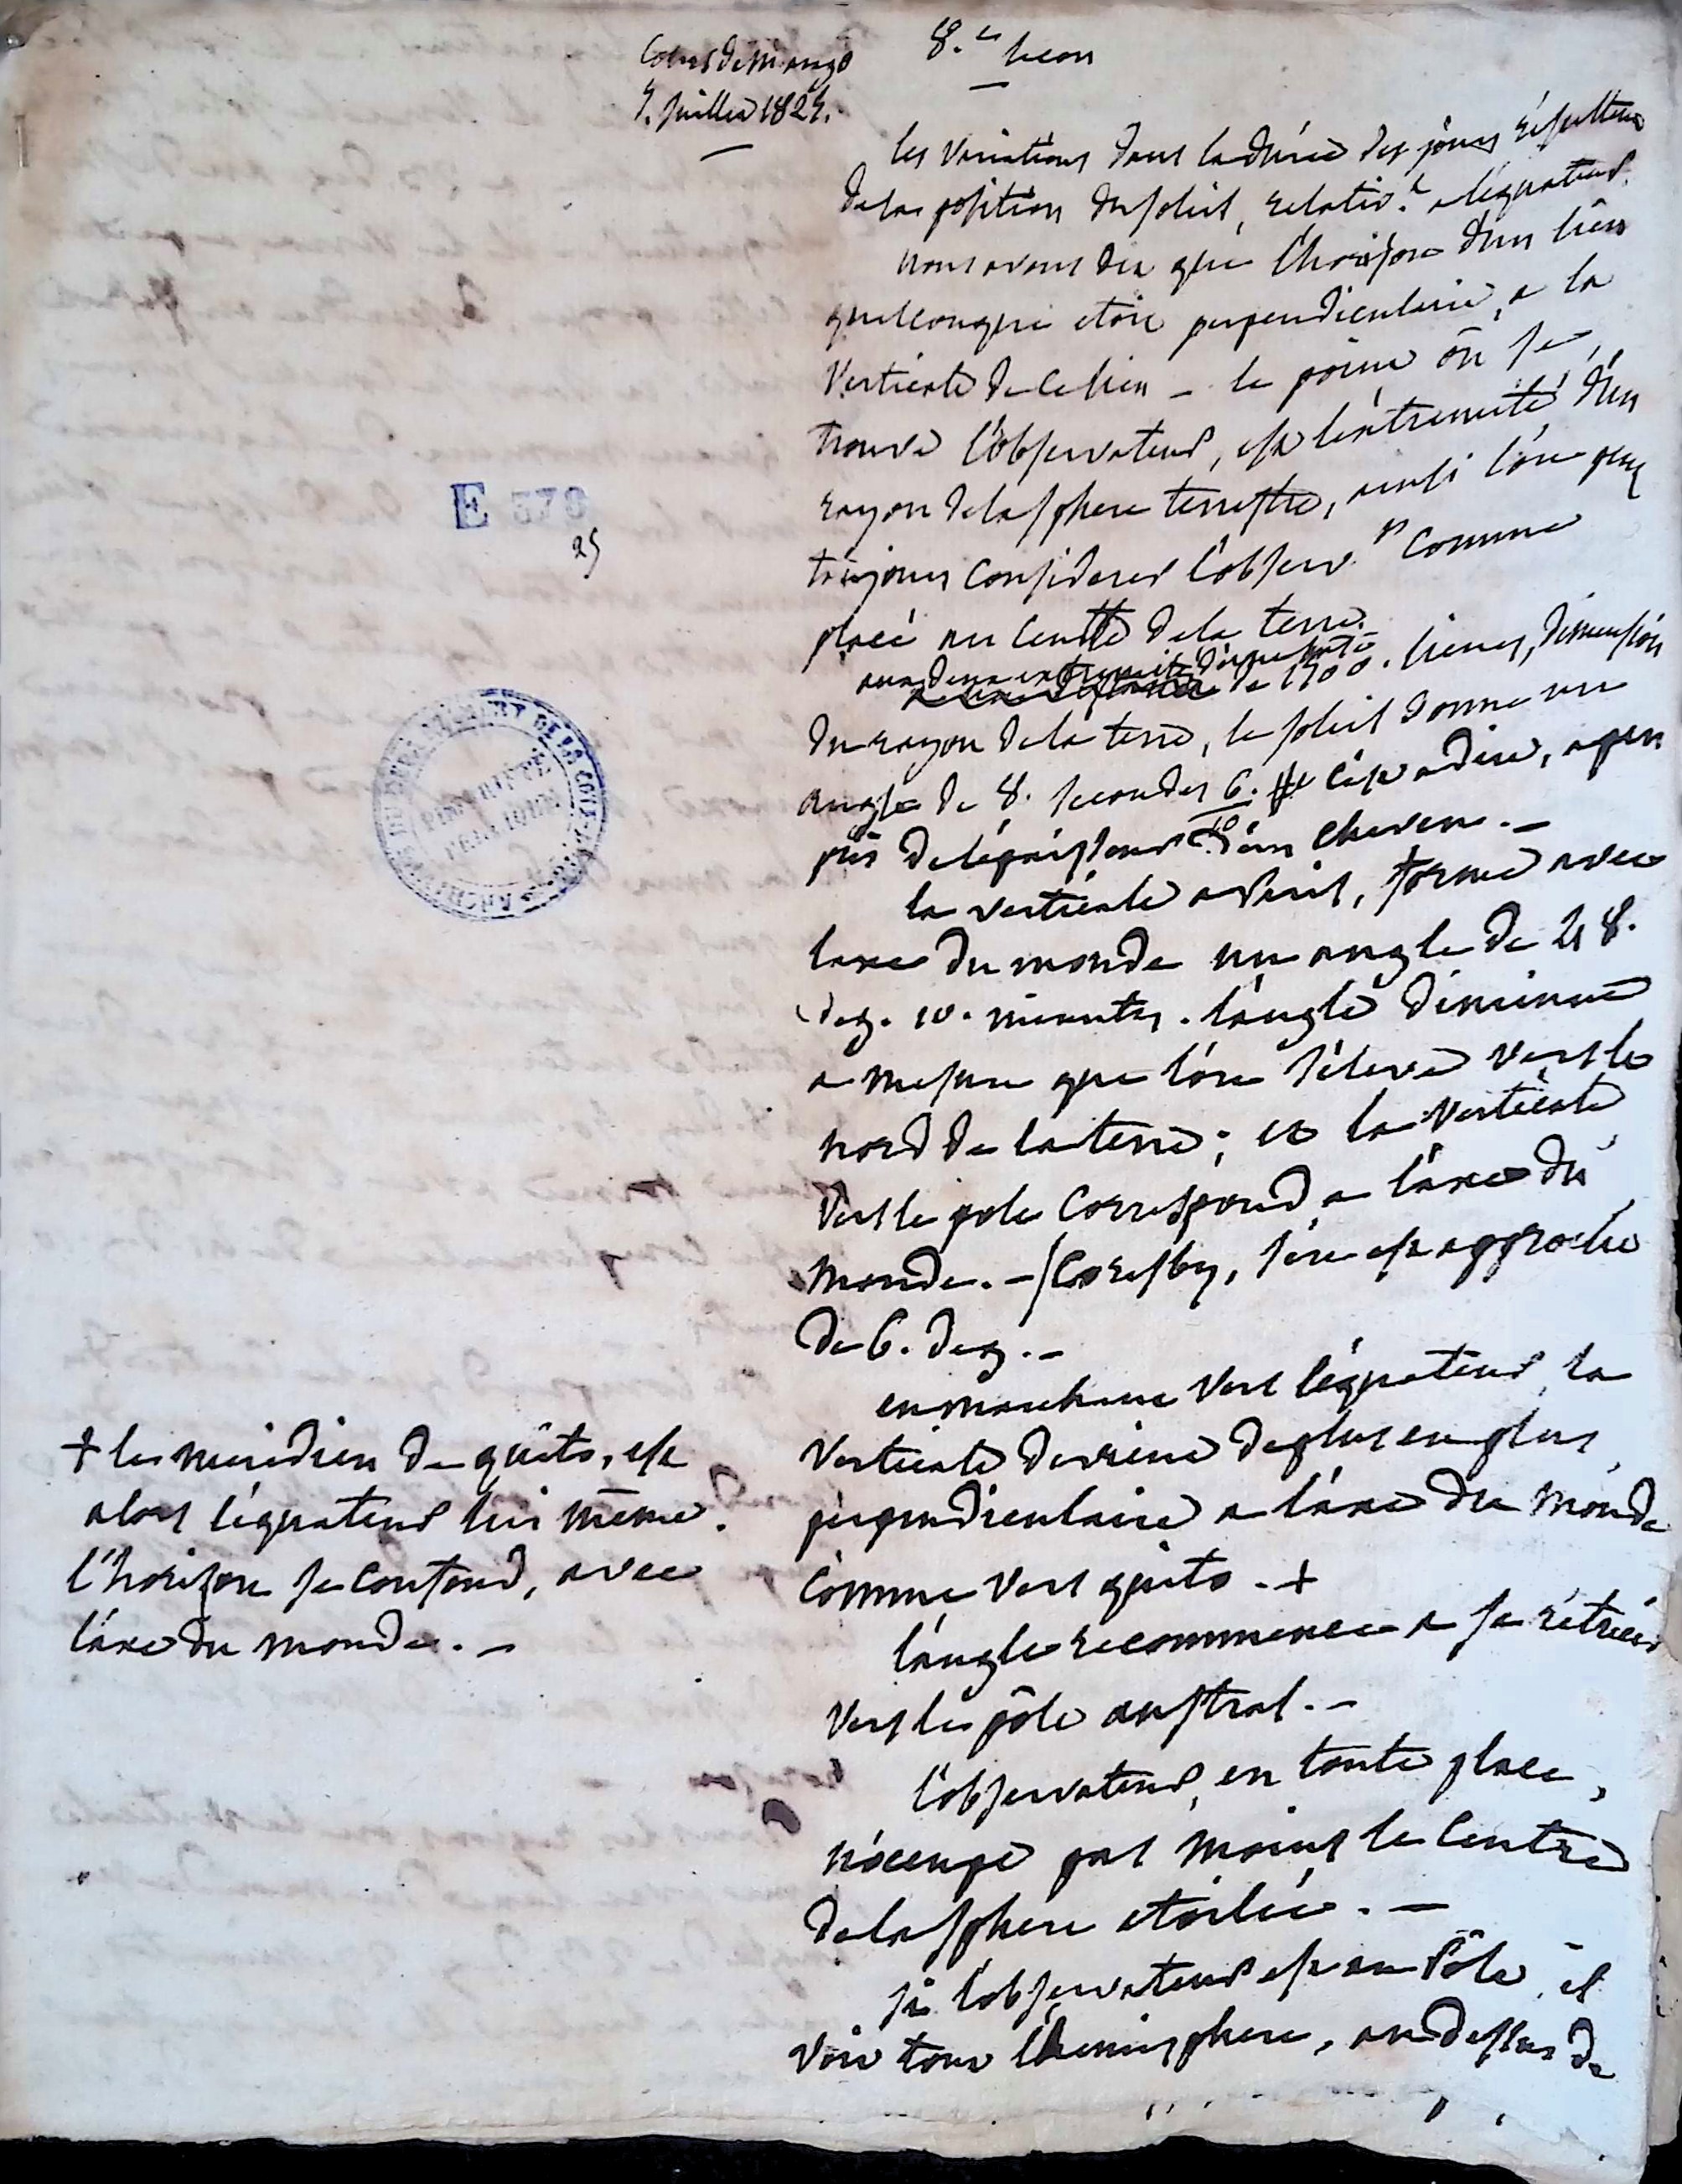 Cours de M. arago
7. juillet 1824.
8.e lecon
les variations dans la durée des jours résultent
de la position du soleil, relativ.t a l'équateur.
nous avons dit que l'horison d'un lieu
quelconque etoit perpendiculaire, a la
verticale de ce lieu - le point où se
trouve l'observateur, est l'extremité d'un
rayon de la sphere terrestre, ainsi l'on peut
toujours considerer l'observ.r comme
placé au centre de la terre.
aux deux extremités d'une base de 1500. lieues, dimension
du rayon de la terre, le soleil donne un
angle de 8. secondes 6/10. c'est a dire, a peu
près de l'épaisseur d'un cheveu. -
la verticale a Paris, forme avec
l'axe du monde un angle de 48.
deg. 10. minutes. l'angle diminue
a mesure que l'on s'éleve vers le
nord de la terre; et la verticale
vers le pole correspond a l'axe du
monde. - Scoresby, s'en est approché
de 6. deg. -
en marchant vers l'équateur la
verticale devient de plus en plus
perpendiculaire a l'axe du monde
comme vers quito. +
+ le meridien de quito, est
alors l'équateur lui même.
l'horizon se confond, avec
l'axe du monde. -
l'angle recommence a se rétrécir
vers le pôle austral. -
l'observateur, en toute place,
n'occupe pas moins le centre
de la sphere etoilée. -
si l'observateur est au Pôle, il
voit tout l'hemisphere, au dessus de
E 378
25